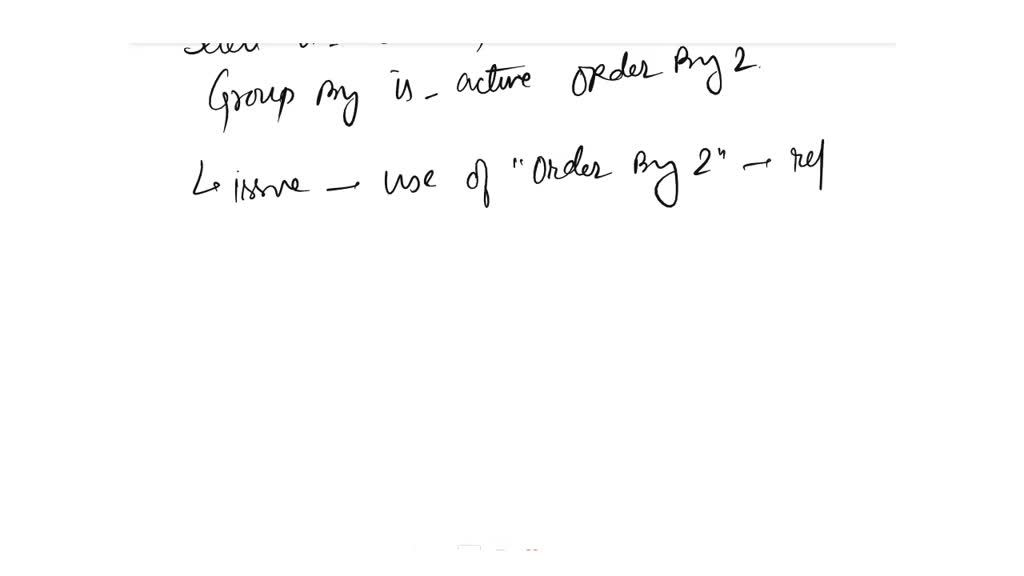 Group By is_active Order By 2.
↳ issue → use of "Order By 2" → ref